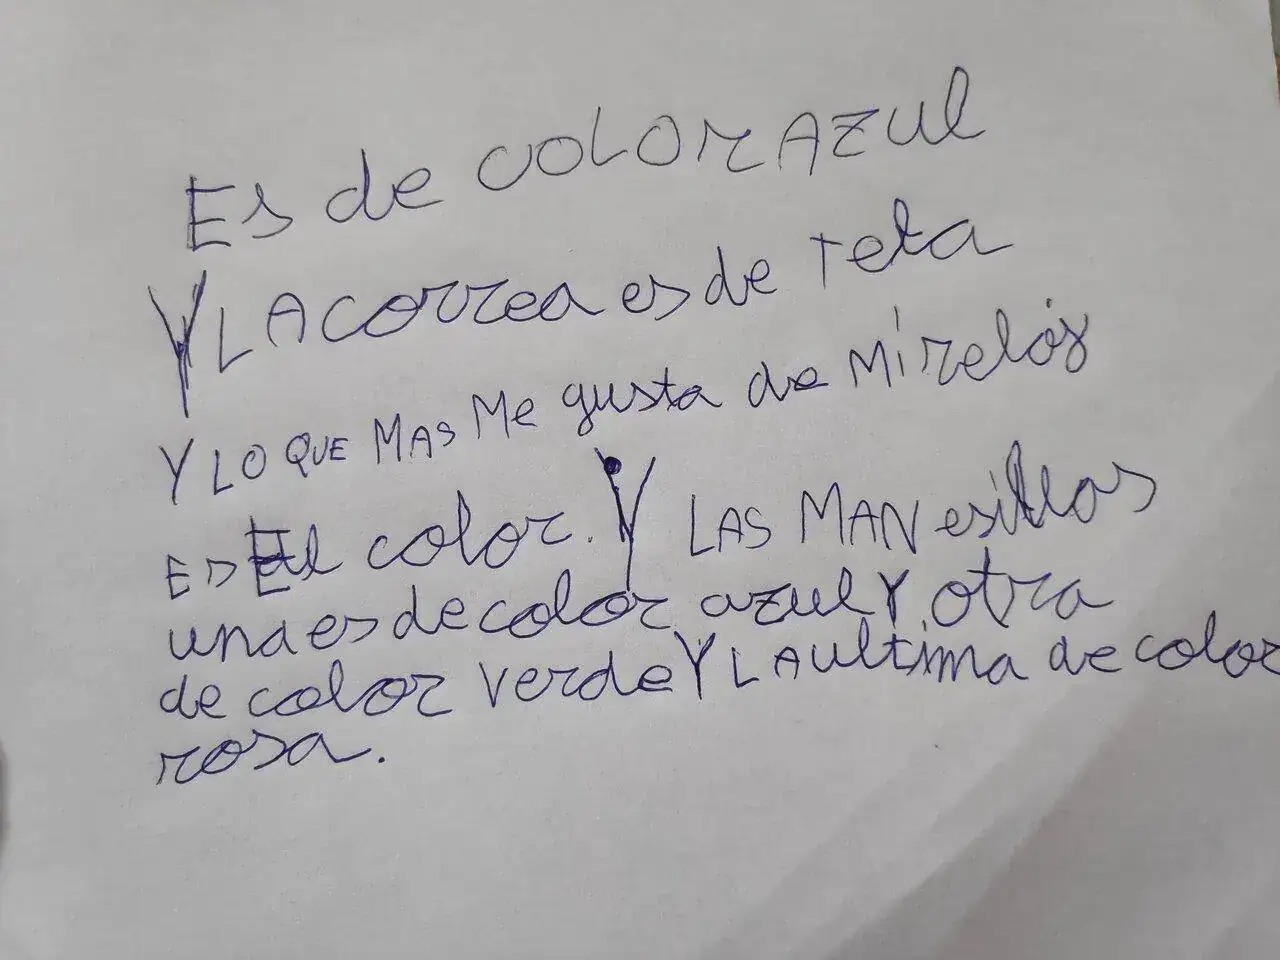 Es de COLOR AZUL
Y LA correa es de teta
Y LO QUE MAS Me gusta de Mi relój
ES El color. Y LAS MANesillas
una es de color azul Y otra
de color verde Y LA ultima de color
rosa.